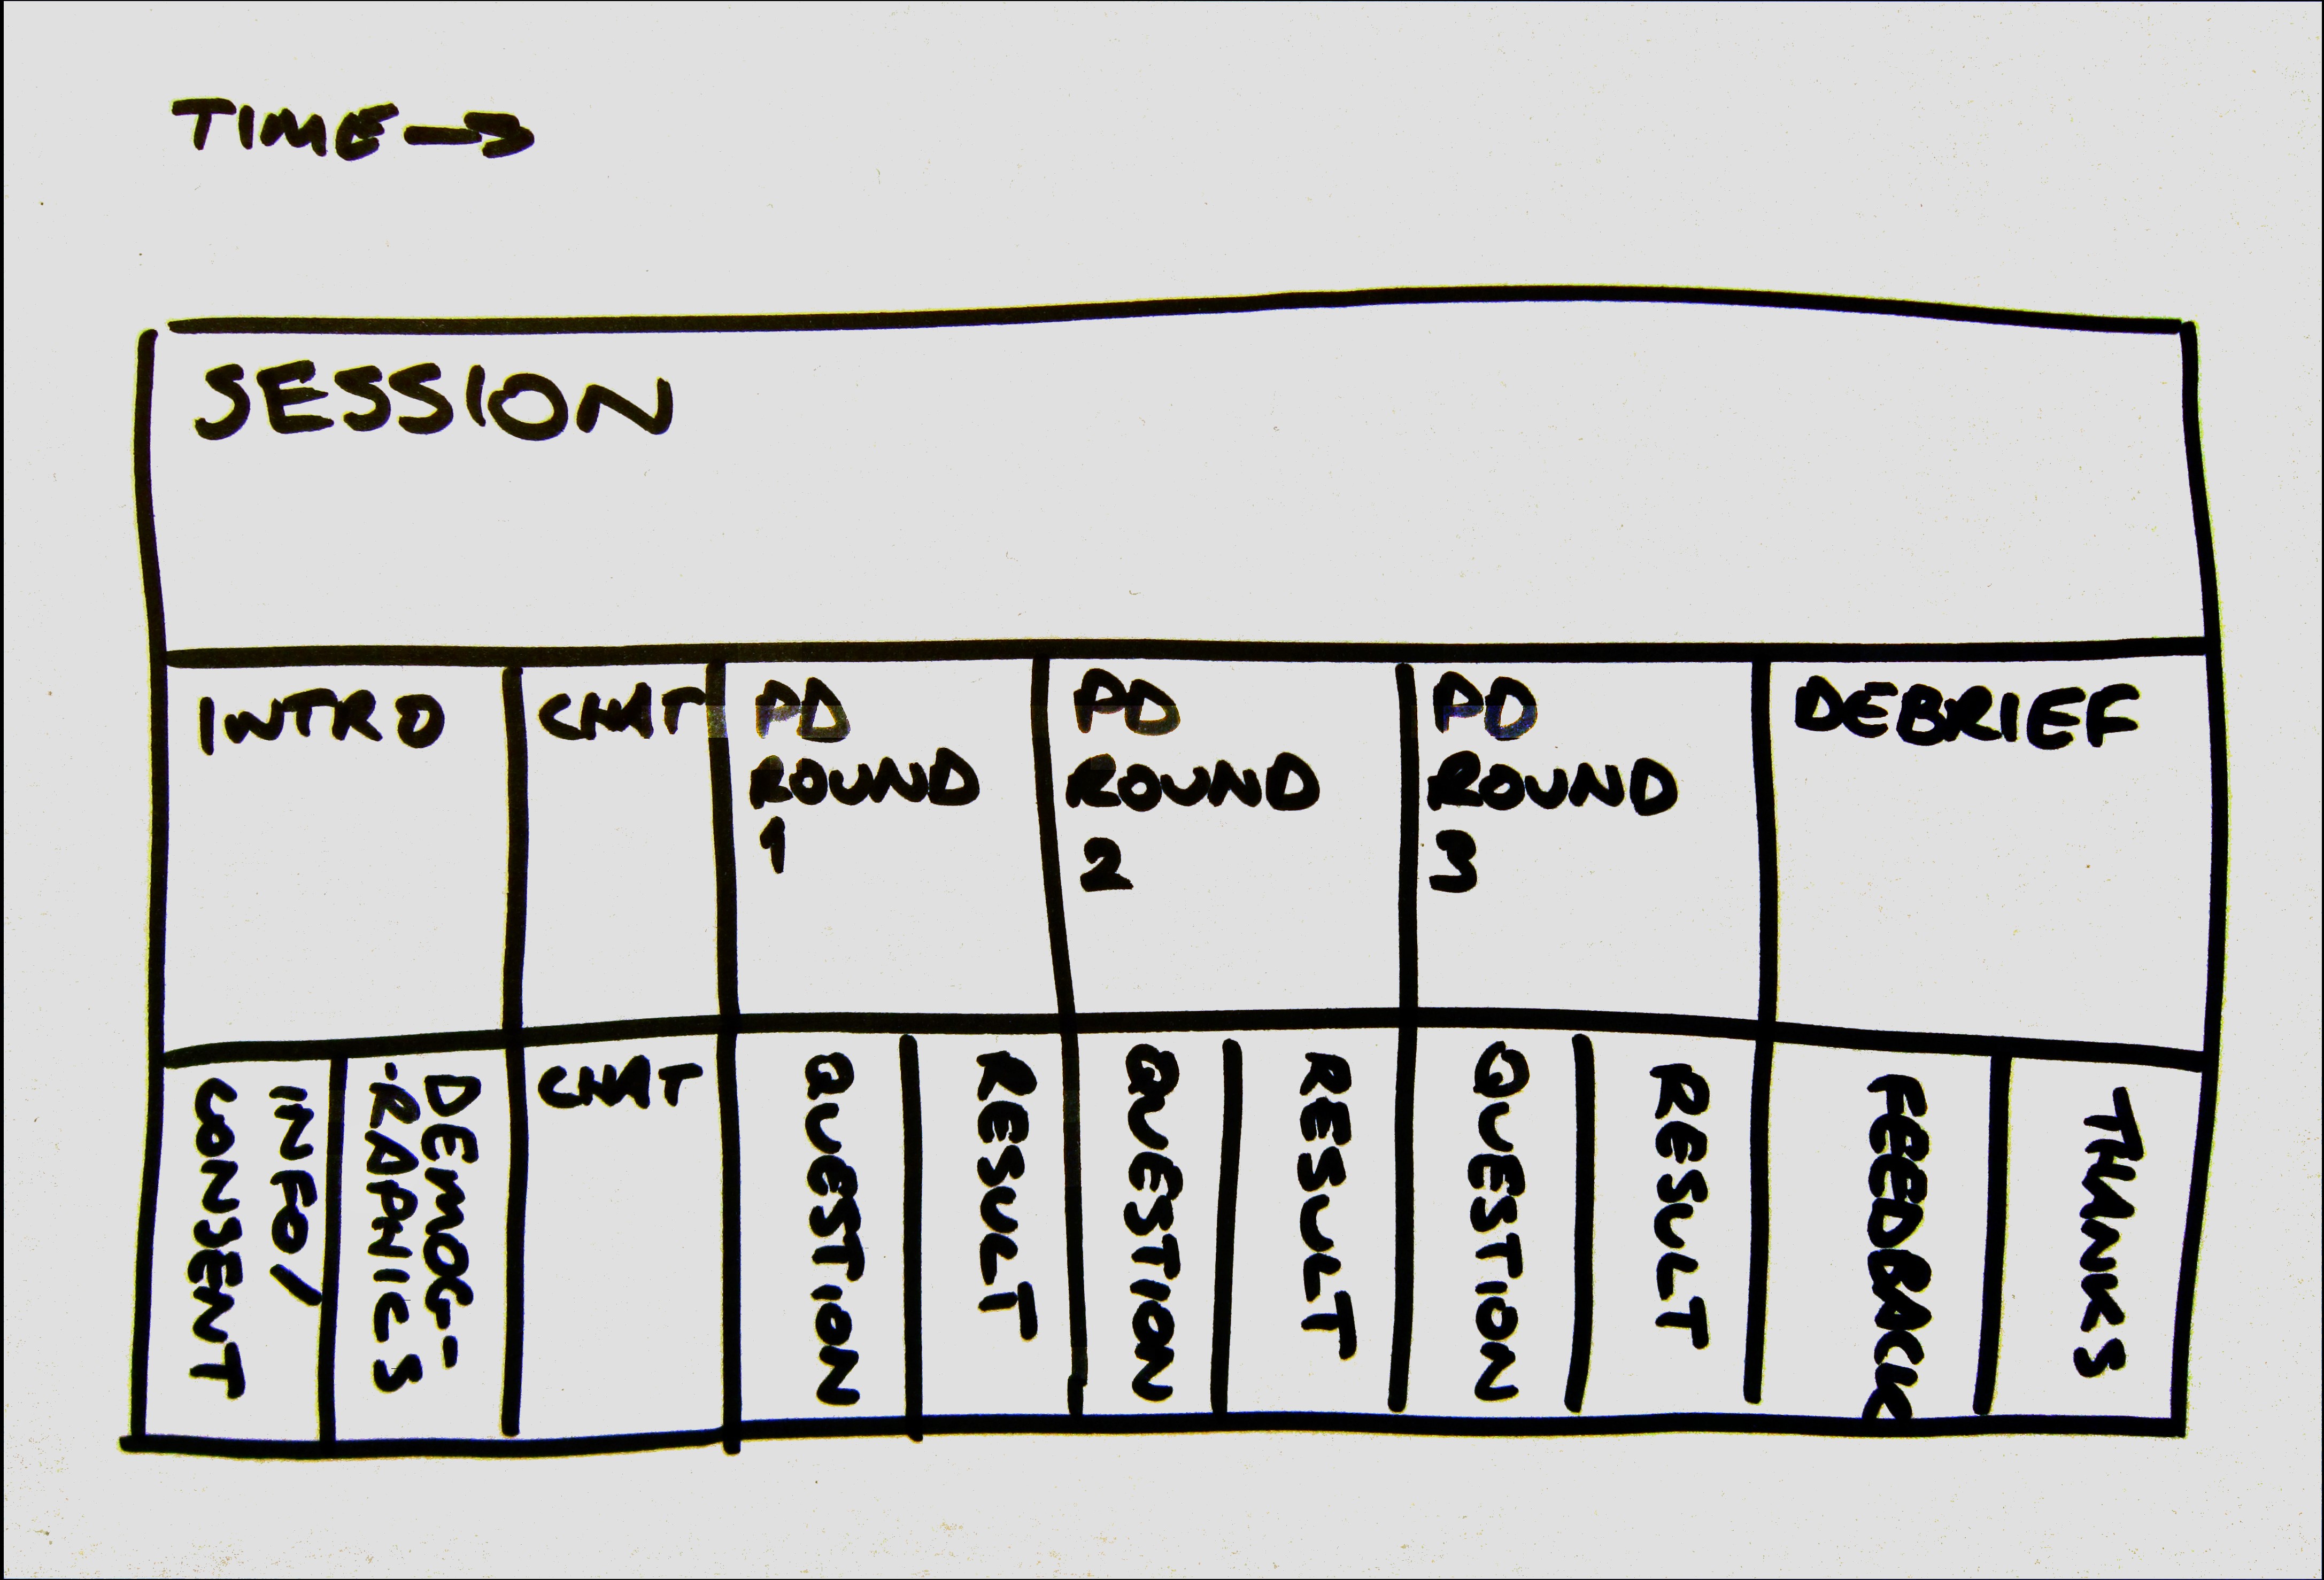 TIME→
SESSION
INTRO
CHAT
PD
ROUND
1
PD
ROUND
2
PD
ROUND
3
DEBRIEF
INFO/
CONSENT
DEMOG-
RAPHICS
CHAT
QUESTION
RESULT
QUESTION
RESULT
QUESTION
RESULT
FEEDBACK
THANKS